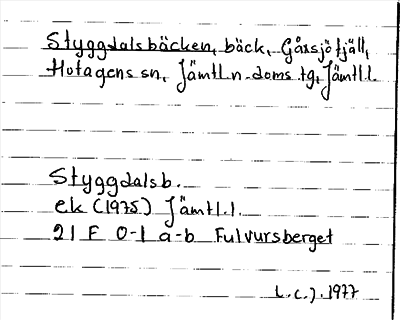 Styggdalsbäcken, bäck, Gåxsjö fjäll,
Hotagens sn, Jämtl. n. doms.tg, Jämtl.l.
Styggdalsb.
ek (1975) Jämtl.l.
21 F 0-1 a-b Fulvursberget
L.C.J. 1977